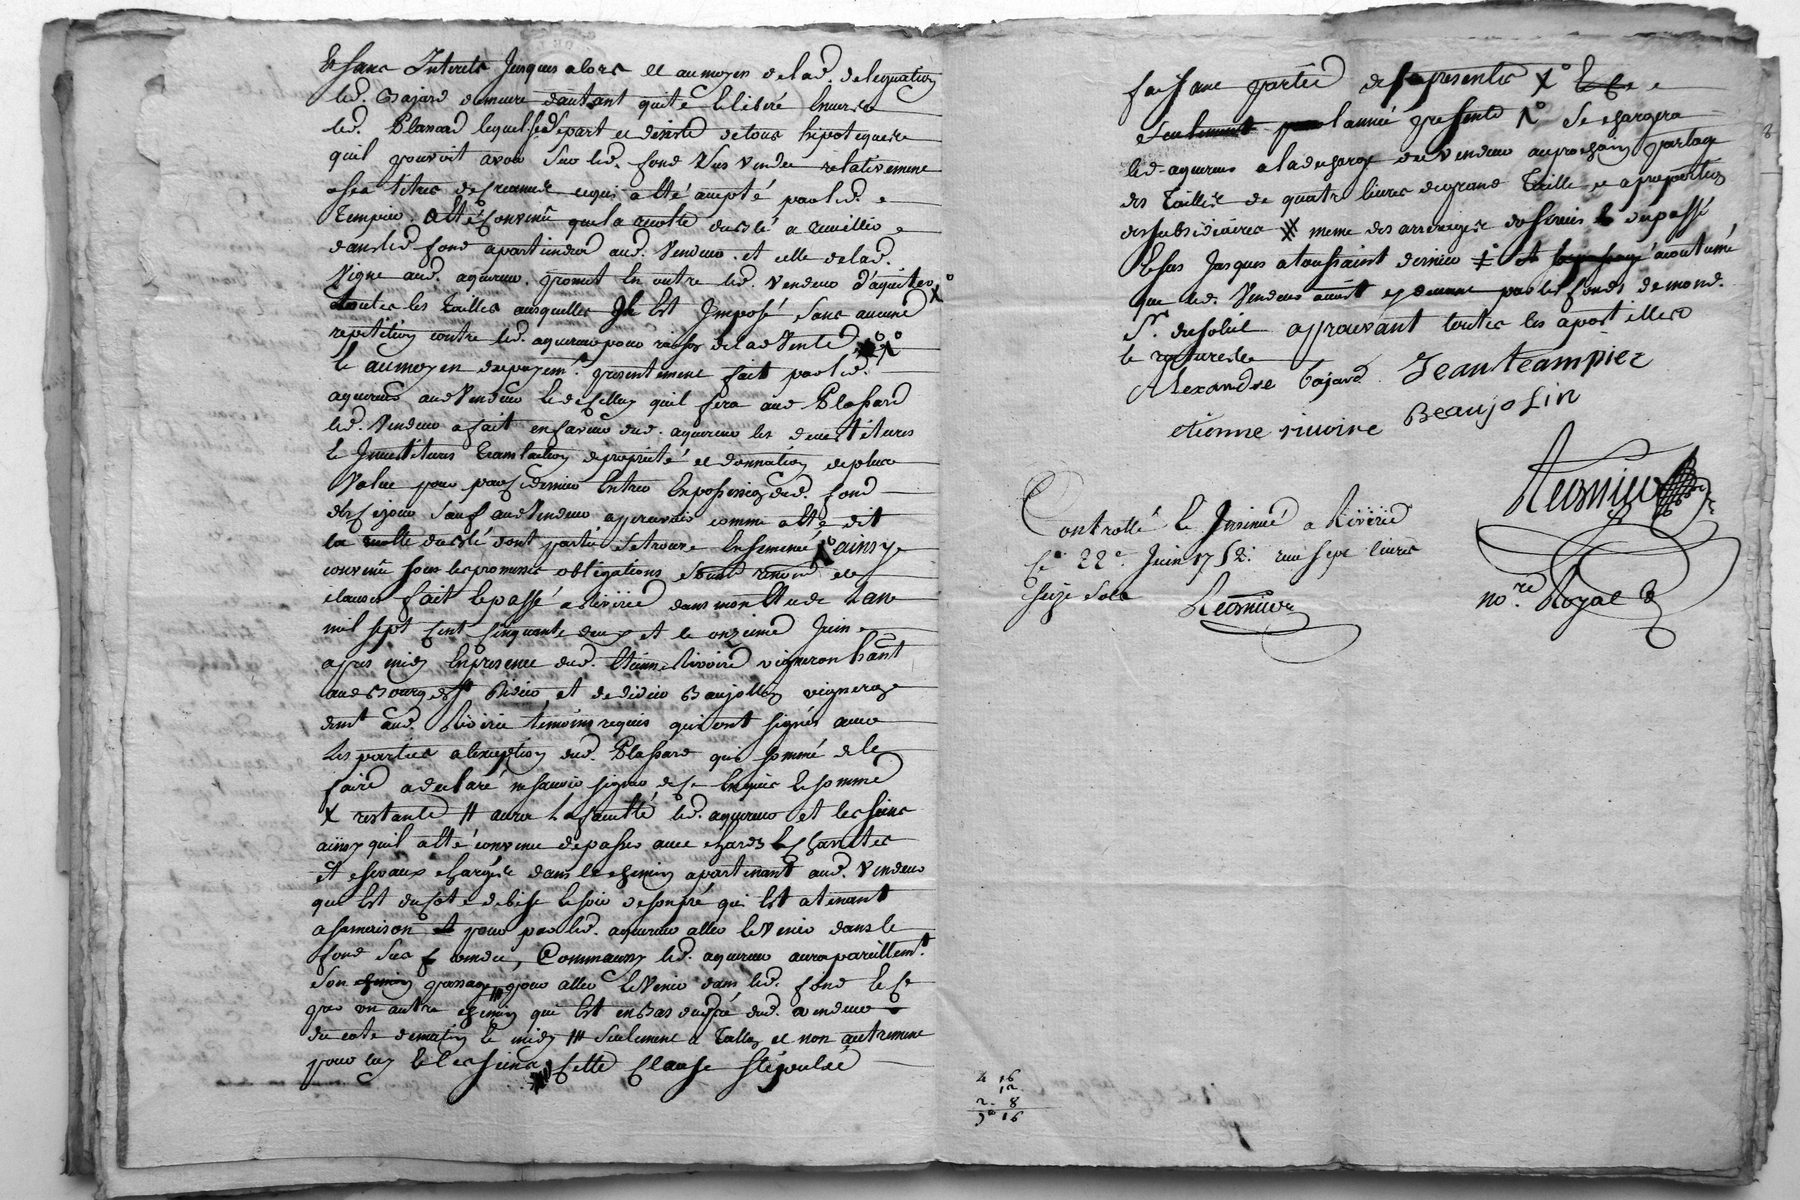 et sans Interets Jusques alors et au moyen de lad. delegation
led. Bajard demeure dautant quité et liberé Envers
led. Blanard lequel se depart et desiste de tous hipoteques
quil pouvoit avoir Sur led. fond sus vendu relativement
a ses titres de creance cequi a été accepté par led.
Tempier. a été Convenu que la recolte du blé a recuillir
dans led. fond apartiendra aud. Vendeur et celle de lad.
Vigne aud. aquereur. promet En outre led. vendeur d'aquiter
toutes les tailles ausquelles Il Est Imposé, sans aucune
repetition contre led. aquereur pour raison de lad Vente
et au moyen du payemt. presentement fait par led.
aquereur aud Vendeur et de Celluy quil fera aud Plassard
led. Vendeur a fait en faveur dud. aquereur les devestitures
et Investitures translation de proprieté et donnation de plus
Value pour par Ce dernier Entrer En possession dud. fond
des Ce jour Sauf aud Vendeur a percevoir comme a été dit
la recolte du blé dont partie Se trouve Ensemencé ainsy
convenu sous les promesses obligations et
clauses fait et passé a Riverie dans mon Etude Lan
mil sept Cent Cinquante deux et le onzieme Juin
apres midy En presence dud. Etienne Rivoire vigneron hant
aud Bourg de St Didier et de Didier Baujollin vigneron
demt aud. Riverie temoins requis qui ont signés avec
Les parties a lexception dud. Plassard qui sommé de le
faire a declaré ne savoir signer de Ce Enquis et sommé
X restante # aura La faculté led. aquereur et les siens
ainsy quil a été convenu de passer avec chards et Charettes
et chevaux chargés dans le chemin apartenant aud. Vendeur
qui Est du Coté de bise et soir de son pré qui Est atenant
a sa maison et pour par led. aquereur aller et Venir dans le
fond Sus vendu, Comme aussy led. aquereur aura pareillemt.
Son chemin passage pour aller et Venir dans led. fond et Ce
par un autre chemin qui Est en Bas du pré dud. vendeur
du coté de matin et midy # seulement a Tallon et non autrement
pour luy et les siens Cette Clause Stipulée
faisant partie des presentes X°
seulement pour lannée presente Se chargera
led. aquereur a la decharge du Vendeur au prochain partage
des Tailles de quatre livres de grand Taille et a proportion
des subsidiaires # meme des arrerages de servis du passé
et sus Jusques a toussaint dernier accoutumé
que led. Vendeur par led. fonds de mond.
Sr. du soleil approuvant toutes les apostilles
et ratures
Alexandre bajard Jean teampier
etienne rivoire Beaujolin
Reornier
Controllé et Insinué a Riverie
Ce 22e. Juin 1752. reçu sept livres
Seize Sols Reornier
nore. Royal
4 16
12
2. 8
16